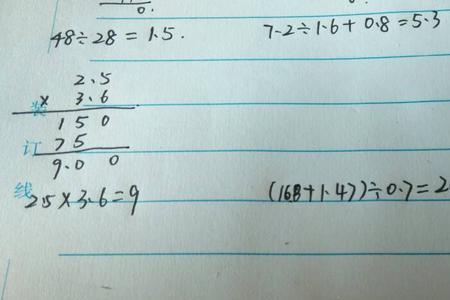 0.
48÷28=1.5.
7.2÷1.6+0.8=5.3
2.5
× 3.6
装
1 5 0
订
7 5
9.0 0
线
2.5×3.6=9
(168+1.47)÷0.7=2